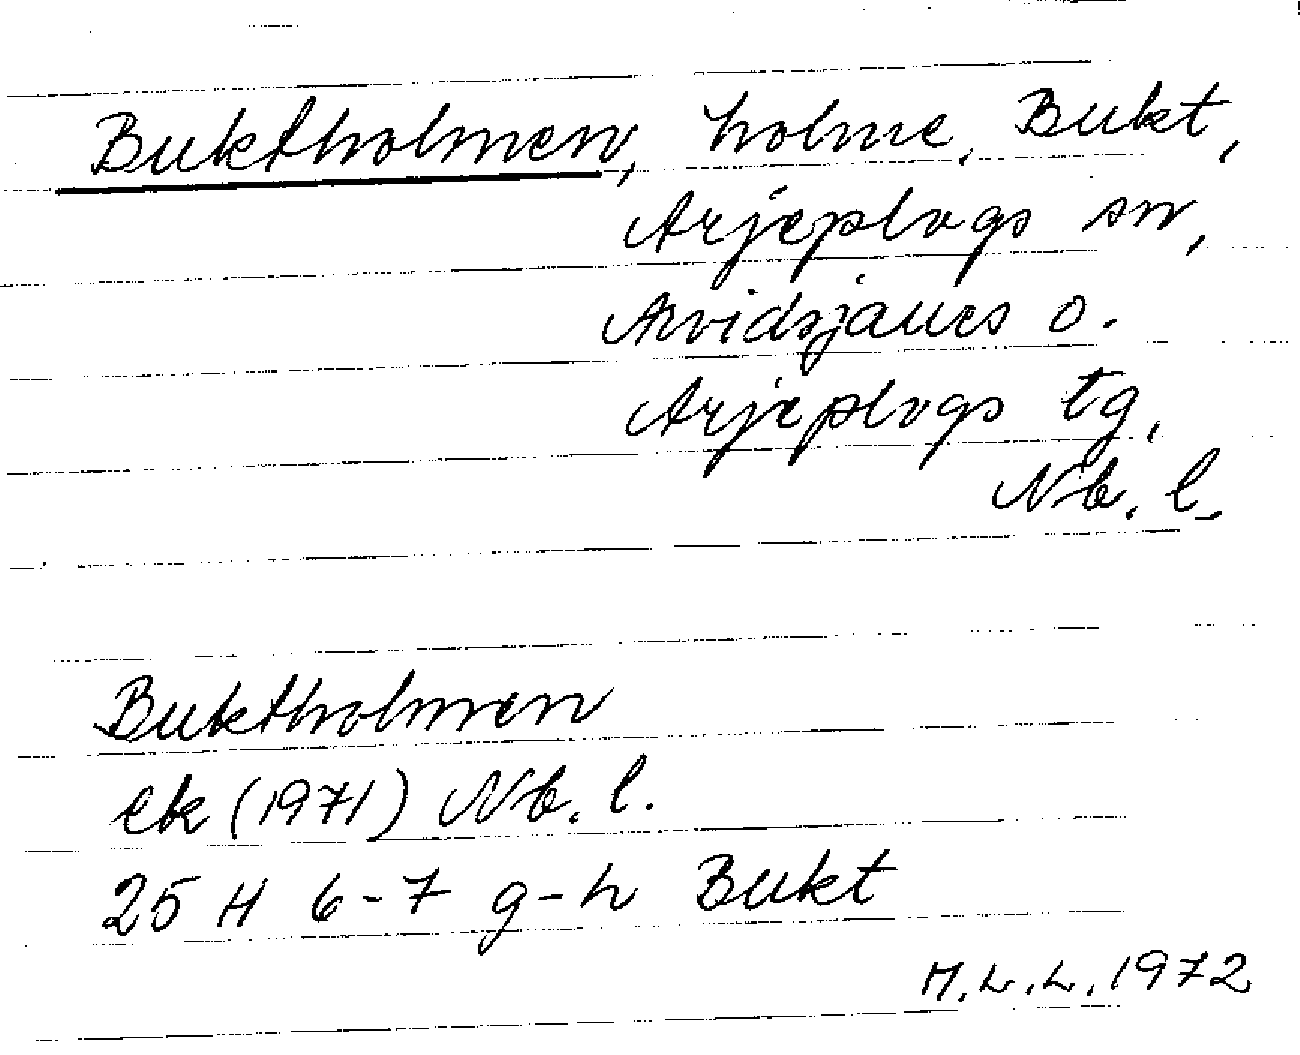 Buktholmen, holme, Bukt,
Arjeplogs sn,
Arvidsjaurs o.
Arjeplogs tg,
Nb. l.
Buktholmen
ek (1971) Nb. l.
25 H 6-7 g-h Bukt
M.L.L. 1972